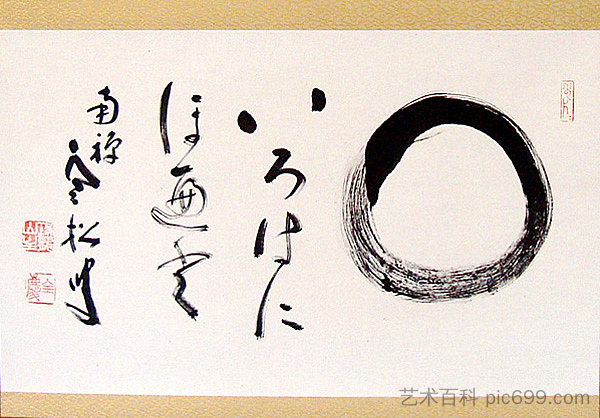 いろはに
ほ遍登
南禅
寒松
全慶
艺术百科 pic699.com